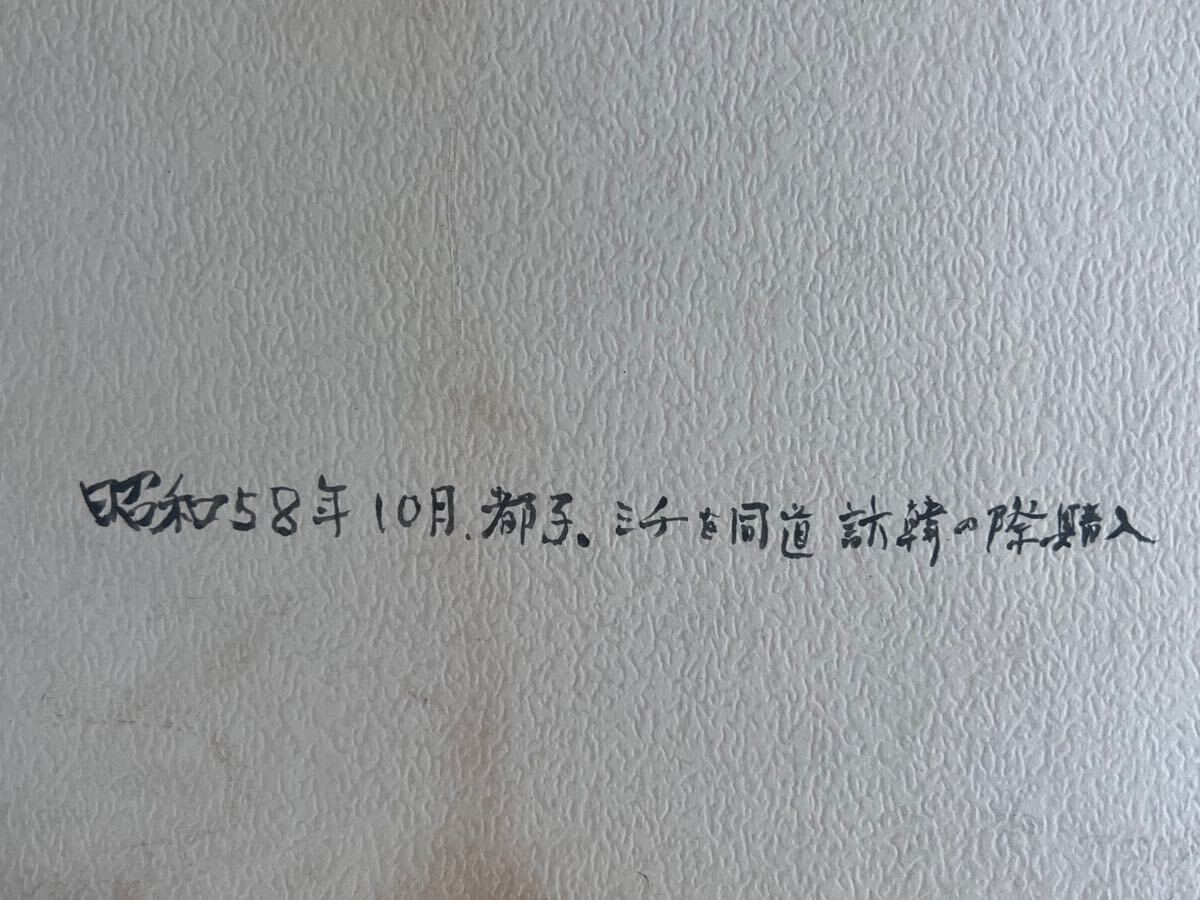 昭和58年10月.都子。ミチを同道訪韓の際購入